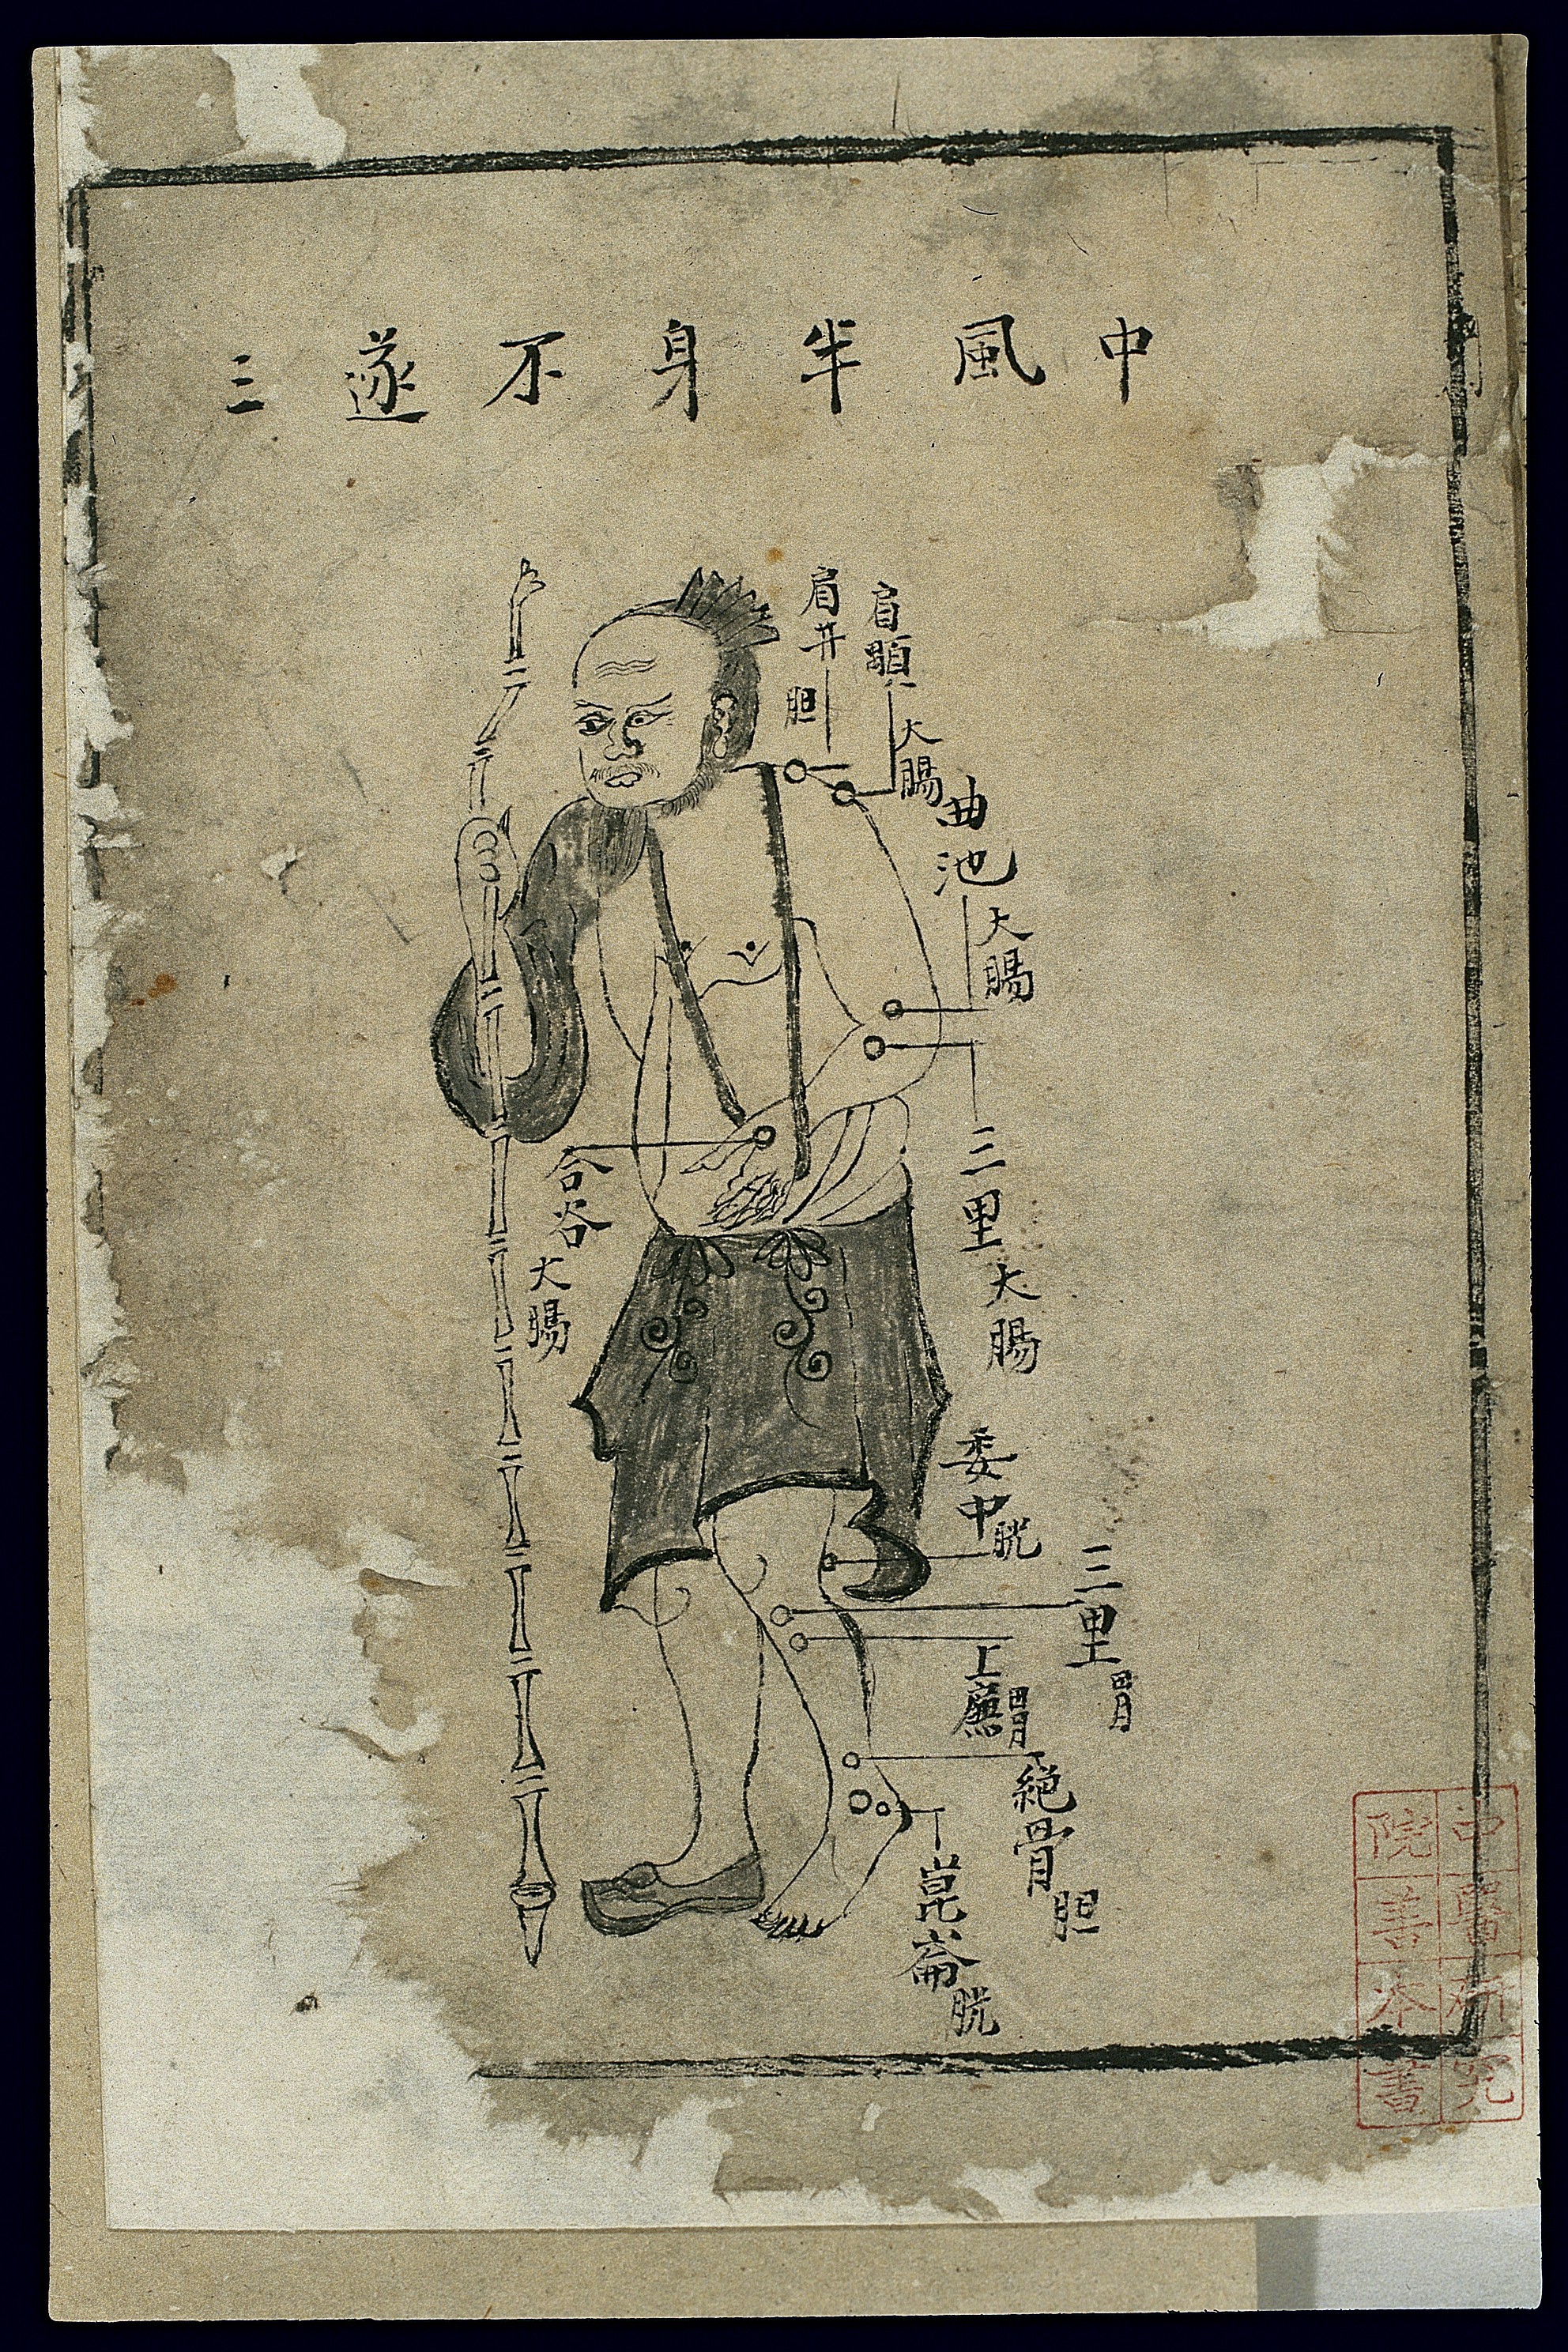 中風半身不遂三
肩井
胆
肩顒
大腸
曲池
大腸
三里
大腸
合谷
大腸
委中
胱
三里
胃
上廉
胃
絕骨
胆
崑崙
胱
中醫研究
院善本書